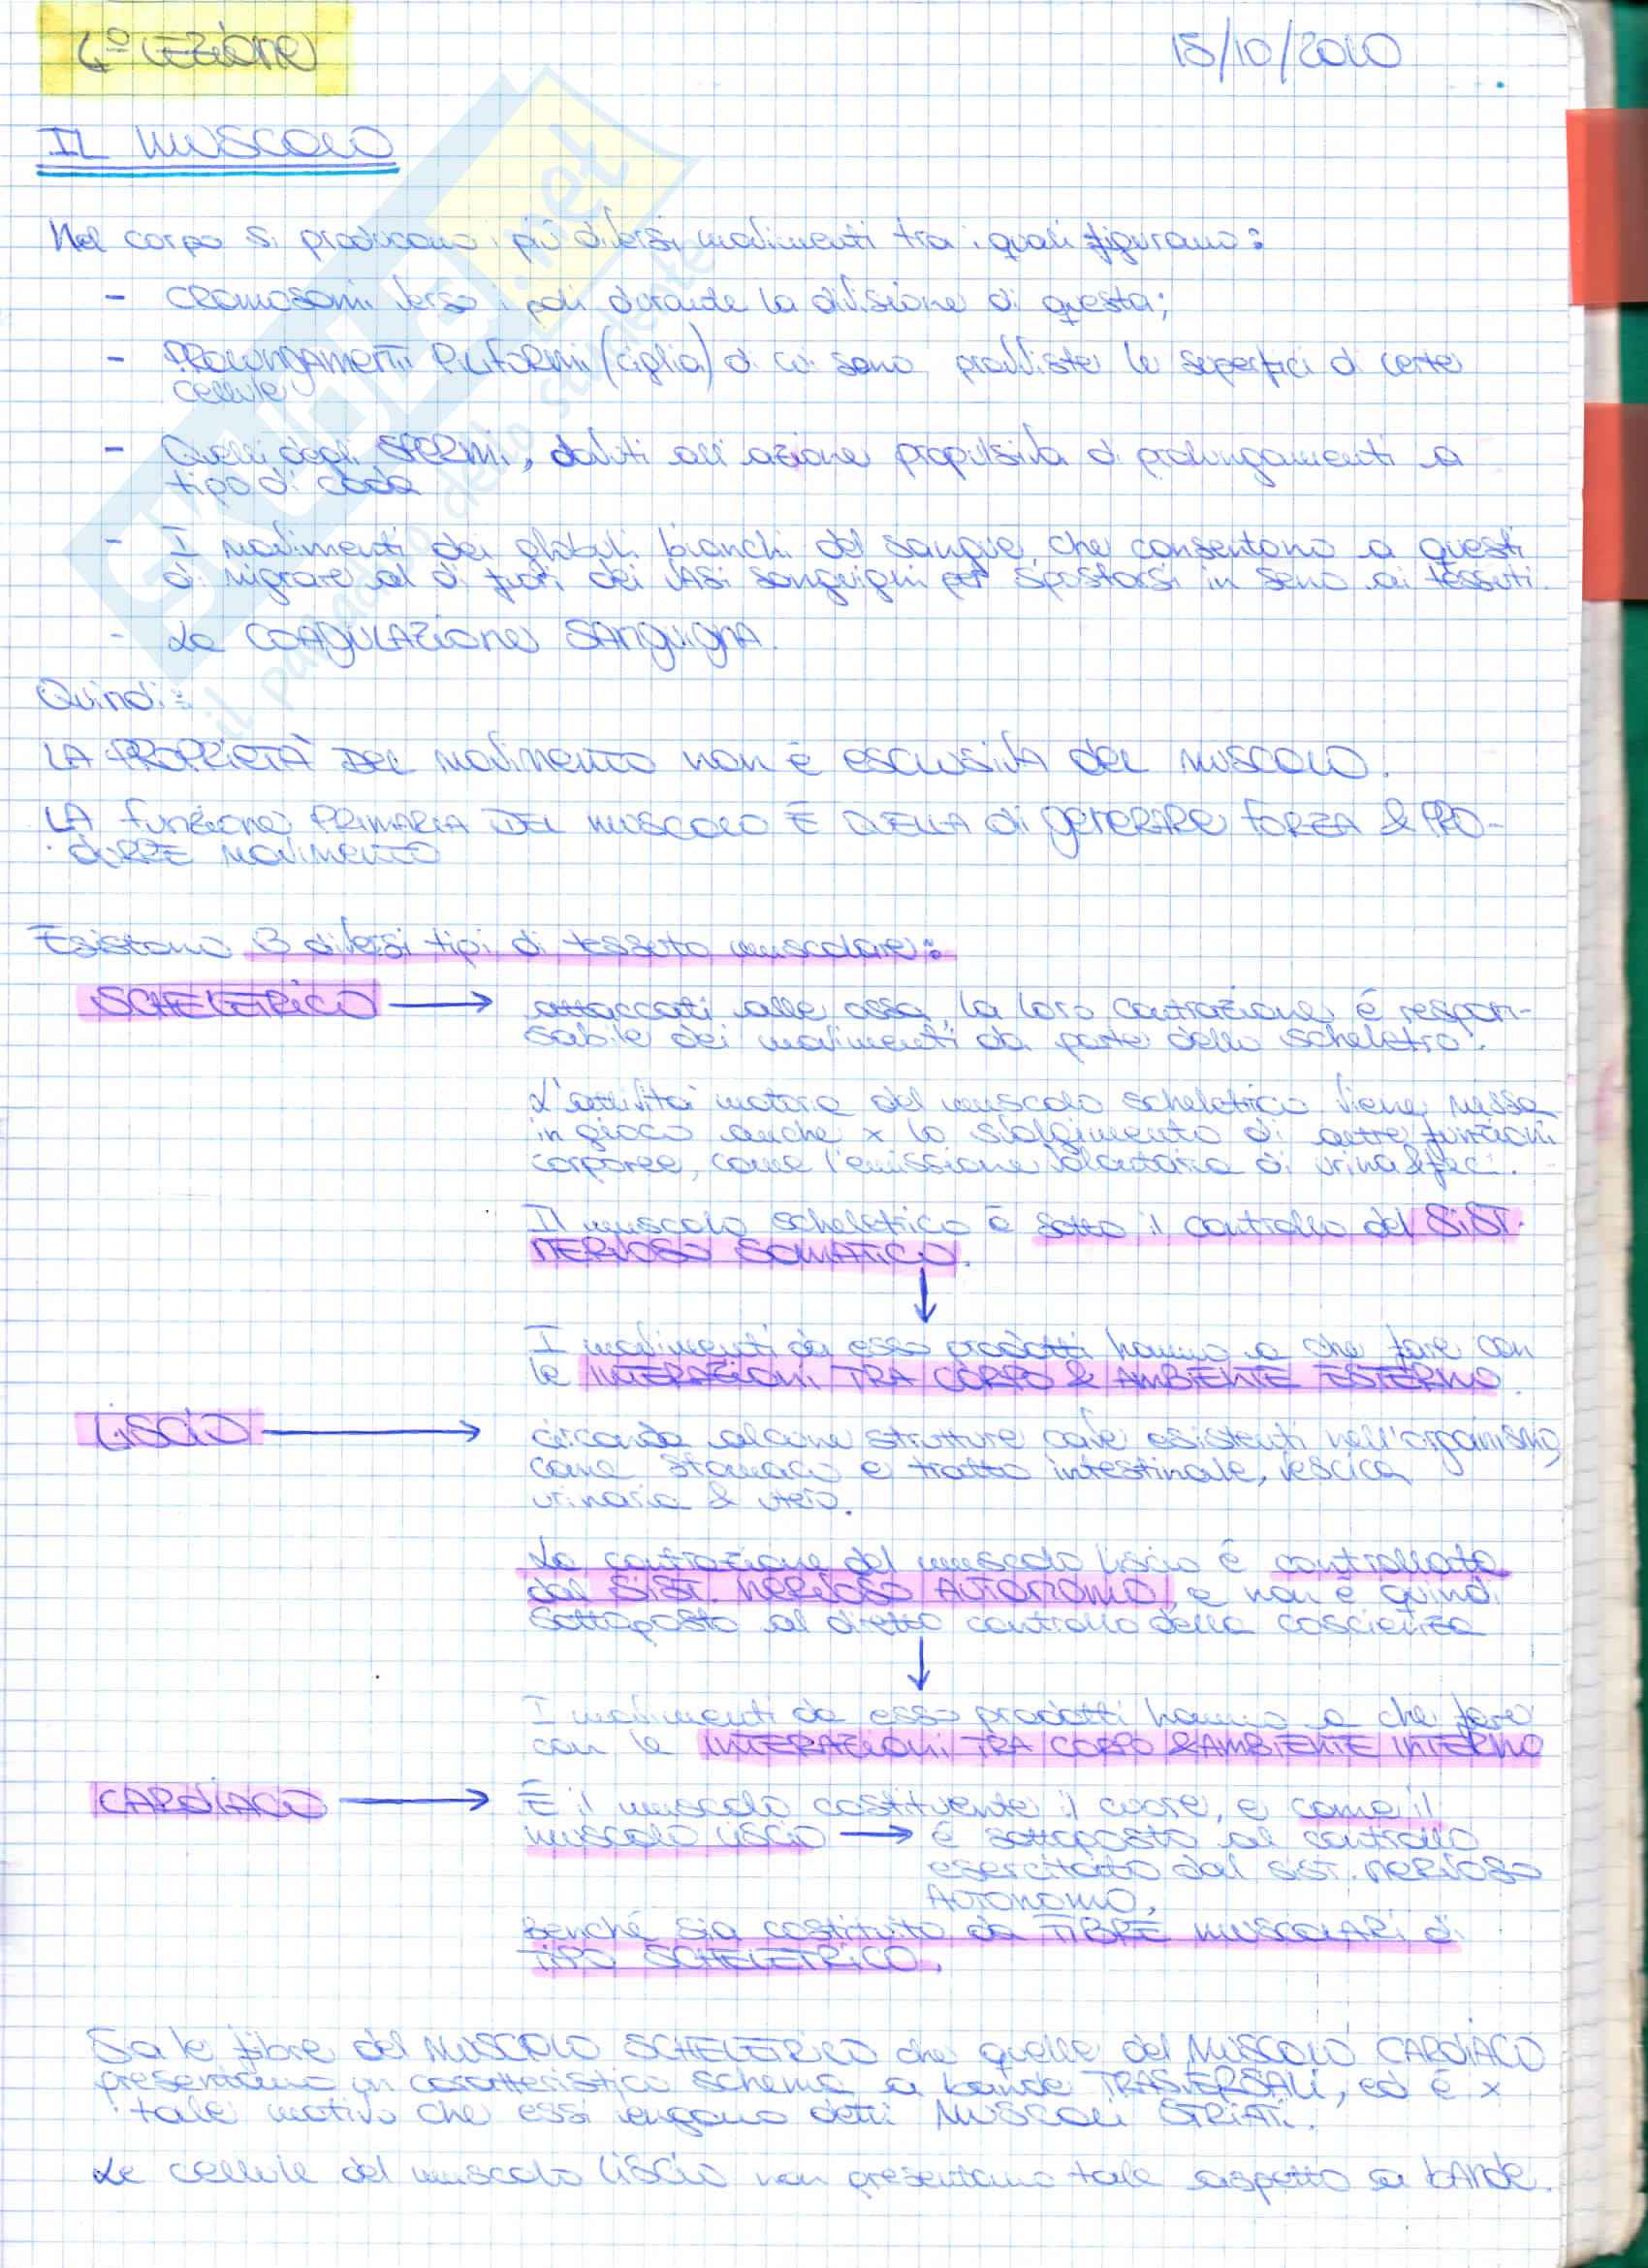 4º LEZIONE
15/10/2010
IL MUSCOLO
Nel corpo si producono i più diversi movimenti tra i quali figurano:
- CROMOSOMI verso i poli durante la divisione di questa;
- PROLUNGAMENTI PILIFORMI (ciglia) di cui sono provviste le superfici di certe
cellule
- Quelli degli SPERMI, dovuti all'azione propulsiva di prolungamenti a
tipo di coda
- I movimenti dei globuli bianchi del sangue, che consentono a questi
di migrare al di fuori dei VASI sanguigni per spostarsi in seno ai tessuti.
- La COAGULAZIONE SANGUIGNA.
Quindi:
LA PROPRIETÀ DEL MOVIMENTO NON È ESCLUSIVA DEL MUSCOLO.
LA FUNZIONE PRIMARIA DEL MUSCOLO È QUELLA DI GENERARE FORZA & PRO-
DURRE MOVIMENTO
Esistono 3 diversi tipi di tessuto muscolare:
SCHELETRICO → attaccati alle ossa, la loro contrazione è respon-
sabile dei movimenti da parte dello scheletro.
L'attività motoria del muscolo scheletrico viene messa
in gioco anche x lo svolgimento di altre funzioni
corporee, come l'emissione volontaria di urina & feci.
Il muscolo scheletrico è sotto il controllo del SIST.
NERVOSO SOMATICO.
↓
I movimenti da esso prodotti hanno a che fare con
le INTERAZIONI TRA CORPO & AMBIENTE ESTERNO.
LISCIO → circonda alcune strutture cave esistenti nell'organismo,
come stomaco e tratto intestinale, vescica
urinaria & utero.
La contrazione del muscolo liscio è controllata
dal SIST. NERVOSO AUTONOMO, e non è quindi
sottoposto al diretto controllo della coscienza
↓
I movimenti da esso prodotti hanno a che fare
con le INTERAZIONI TRA CORPO & AMBIENTE INTERNO
CARDIACO → È il muscolo costituente il cuore, e come il
muscolo LISCIO → è sottoposto al controllo
esercitato dal sist. NERVOSO
AUTONOMO.
Benché sia costituito da FIBRE MUSCOLARI di
TIPO SCHELETRICO.
Sia le fibre del MUSCOLO SCHELETRICO che quelle del MUSCOLO CARDIACO
presentano un caratteristico schema a bande TRASVERSALI, ed è x
tale motivo che essi vengono detti MUSCOLI STRIATI.
Le cellule del muscolo LISCIO non presentano tale aspetto a BANDE.